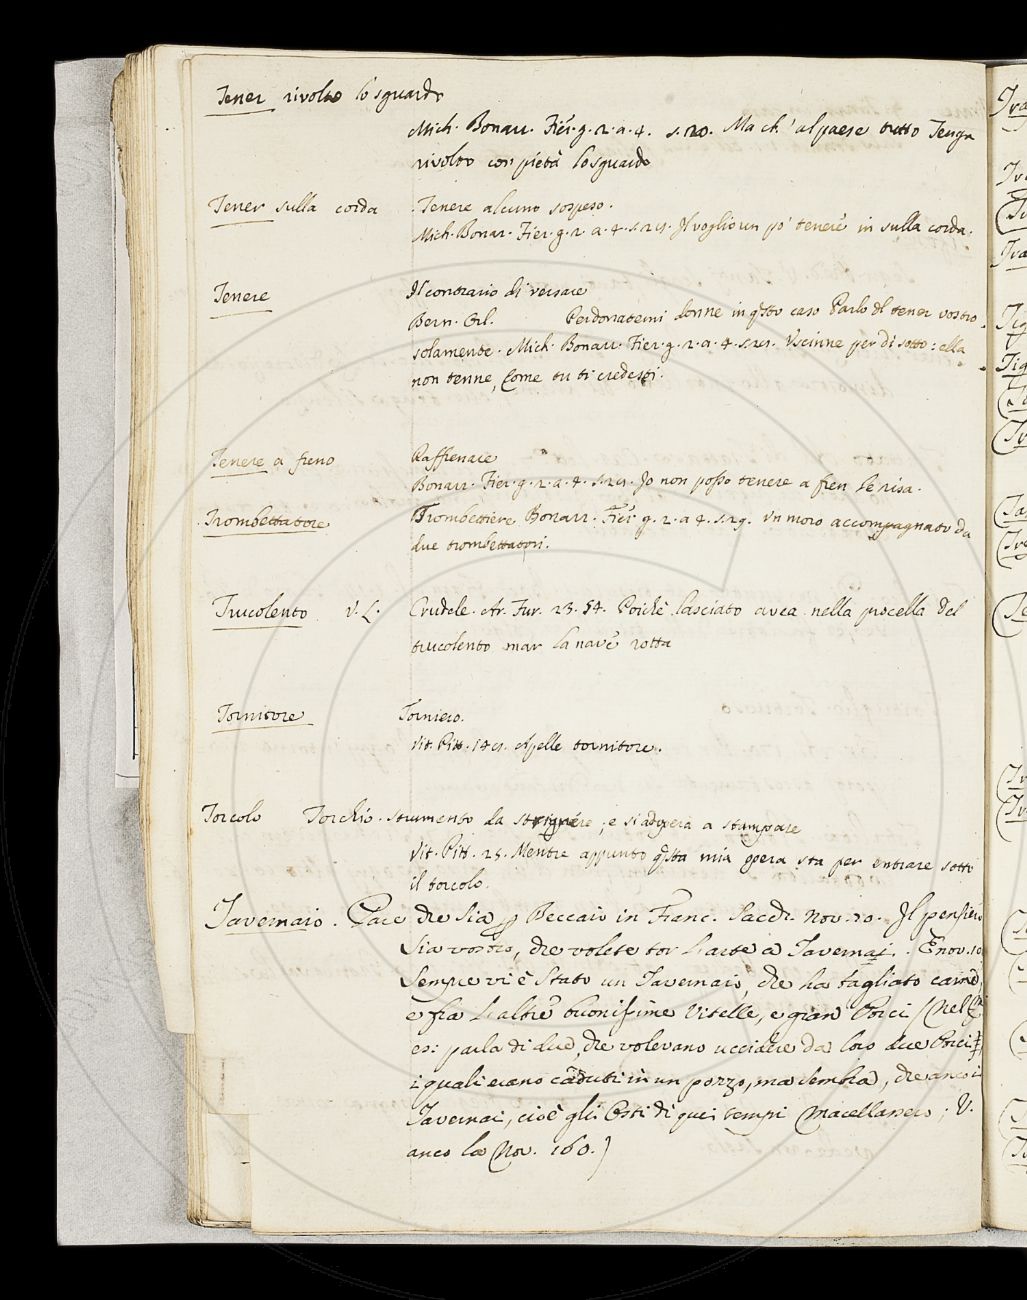 Tener rivolto lo sguardo
Mich. Bonarr. Fier. g. 2. a. 4. s. 20. Ma ch' al paese tutto Tenga
rivolto con pietà lo sguardo
Tener sulla corda Tenere alcuno sospeso.
Mich. Bonar. Fier. g. 2. a. 4. s. 21. Il voglio un po' tenere in sulla corda.
Tenere Il contrario di versare
Bern. Orl. Perdonatemi donne in qsto caso Parlo del tener vostro
solamente. Mich. Bonarr. Fier. g. 2. a. 4. s. 21. Uscinne per di sotto: ella
non tenne, Come tu ti credesti.
Tenere a freno Raffrenare
Bonarr. Fier. g. 2. a. 4. s. 21. Io non posso tenere a fren le risa.
Trombettatore Trombettiere Bonarr. Fier. g. 2. a 4. s. 29. Un moro accompagnato da
due trombettatori.
Truculento V. L. Crudele. Ar. Fur. 23. 54. Poichè lasciato avea nella procella Del
truculento mar la nave rotta
Tornitore Torniero.
Vit. Pitt. 141. Apelle tornitore.
Torcolo Torchio. strumento da strignere, e si adopera a stampare
Vit. Pitt. 25. Mentre appunto qsta mia opera sta per entrare sotto
il torcolo.
Tavernaio. Pare che sia p Beccaio in Franc. Sacch. Nov. 70. Il pensiero
sia vostro, che volete tor l'arte a Tavernai. E nov. 10
Sempre vi è stato un Tavernaio, che ha tagliato carne,
e fra l'altre buonissime Vitelle, e gran Porci (Nel
es: parla di due, che volevano uccidere da loro due Porci,
i quali erano caduti in un pozzo, ma sembra, che anco i
Tavernai, cioè gli Osti di quei tempi macellassero; V.
anco la Nov. 160.)